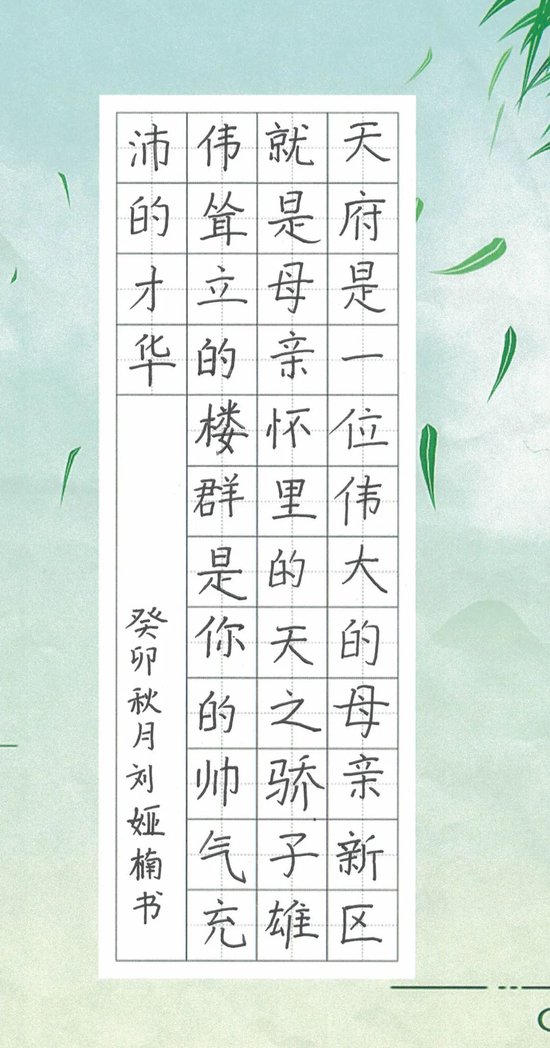 天府是一位伟大的母亲新区
就是母亲怀里的天之骄子雄
伟耸立的楼群是你的帅气充
沛的才华
癸卯秋月刘娅楠书